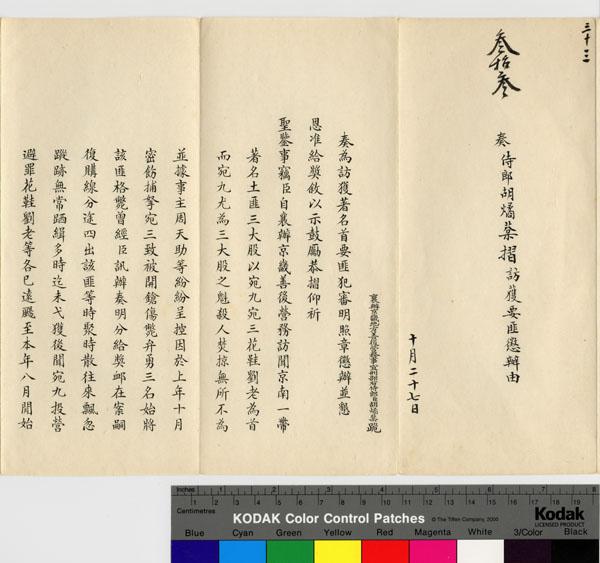 三十三
叁拾叁
奏 侍郎胡燏棻摺 訪獲要匪懲辦由
十月二十七日
奏為訪獲著名首要匪犯審明照章懲辦並懇
恩准給獎敘以示鼓勵恭摺仰祈
聖鑒事竊臣自襄辦京畿善後營務訪聞京南一帶
著名土匪三大股以宛九宛三花鞋劉老為首
而宛九尤為三大股之魁殺人焚掠無所不為
並據事主周天助等紛紛呈控因於上年十月
密飭捕拏宛三致被開鎗傷斃弁勇三名始將
該匪格斃曾經臣訊辦奏明分給獎卹在案嗣
復購線分途四出該匪等時聚時散往來飄忽
蹤跡無常跴緝多時迄未弋獲後聞宛九投營
避罪花鞋劉老等各已遠颺至本年八月開始
Inches
Centimetres
KODAK Color Control Patches
© The Tiffen Company, 2000
Kodak
LICENSED PRODUCT
Blue Cyan Green Yellow Red Magenta White 3/Color Black